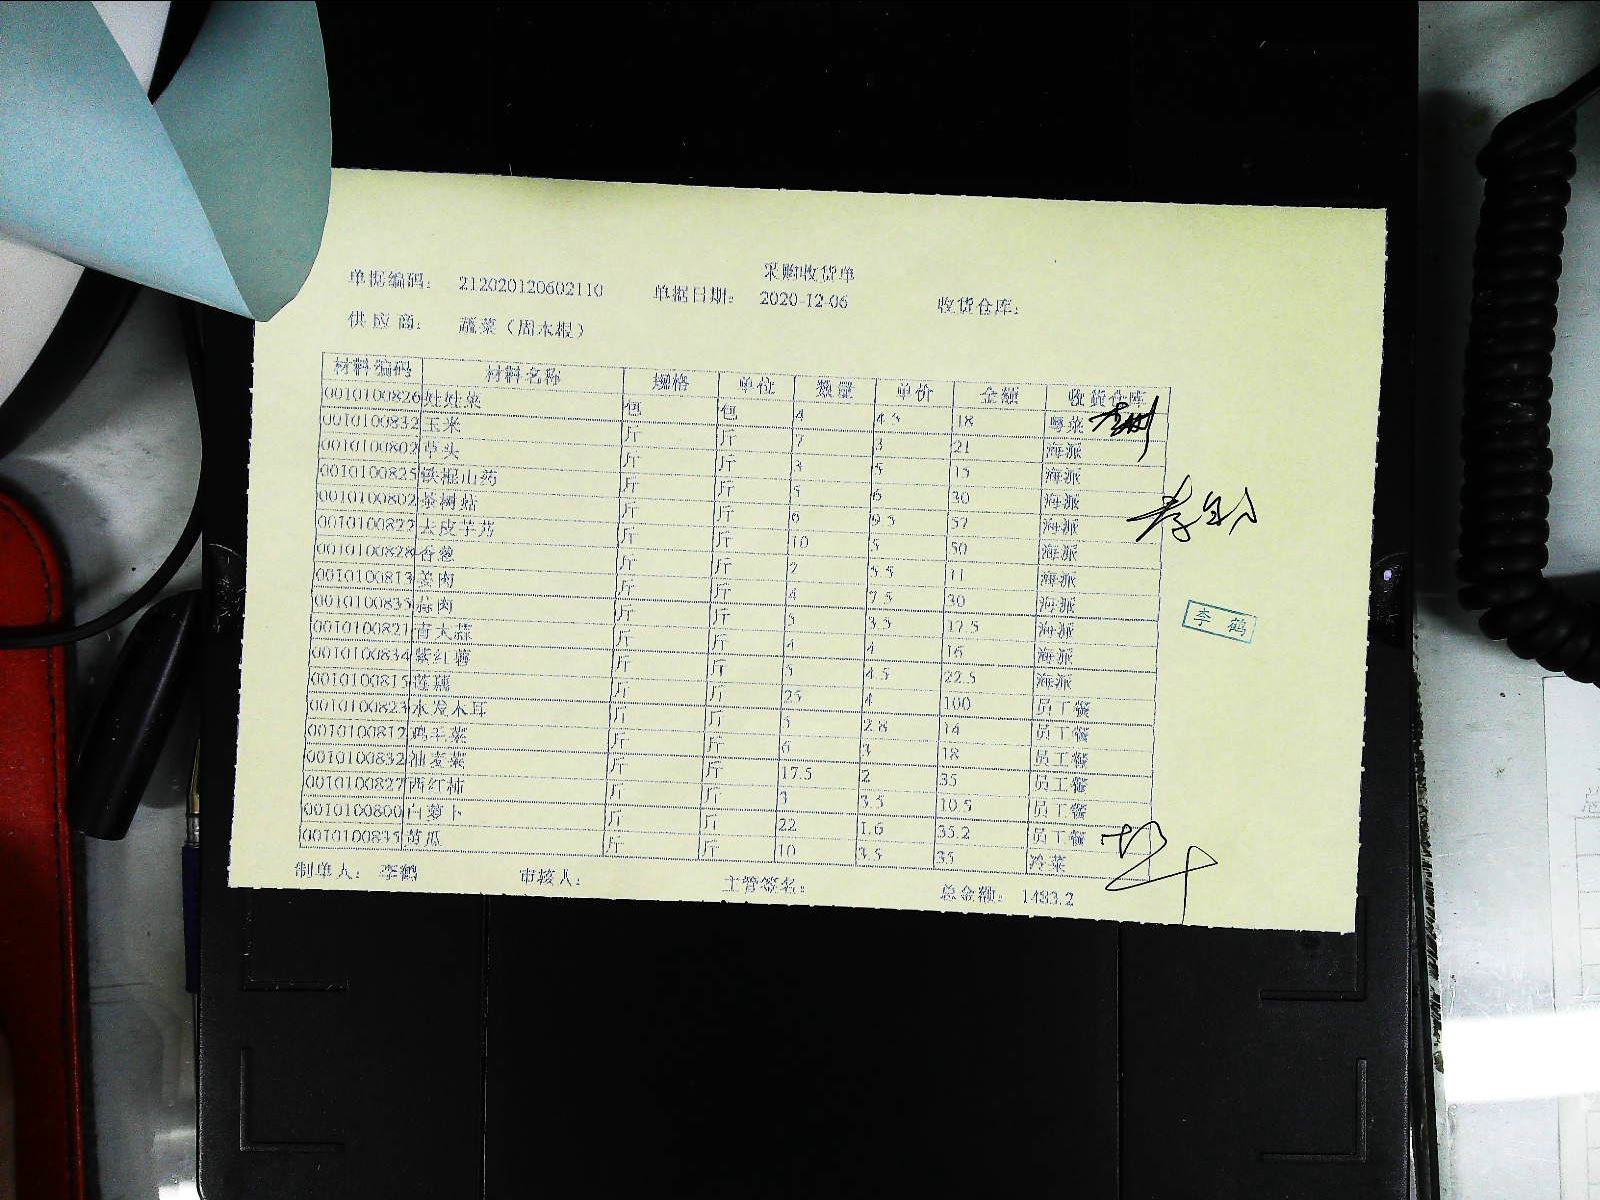 采购收货单
单据编码： 212020120602110 单据日期： 2020-12-06 收货仓库：
供 应 商： 蔬菜（周木根）
材料编码 材料名称 规格 单位 数量 单价 金额 收货仓库
0010100826 娃娃菜 包 包 4 4.5 18 粤菜
0010100832 玉米 斤 斤 7 3 21 海派
0010100802 草头 斤 斤 3 5 15 海派
0010100825 铁棍山药 斤 斤 5 6 30 海派
0010100802 茶树菇 斤 斤 6 9.5 57 海派
0010100822 去皮芋艿 斤 斤 10 5 50 海派
0010100828 香葱 斤 斤 2 5.5 11 海派
0010100813 姜肉 斤 斤 4 7.5 30 海派
0010100835 蒜肉 斤 斤 5 3.5 17.5 海派
0010100821 青大蒜 斤 斤 4 4 16 海派
0010100834 紫红薯 斤 斤 5 4.5 22.5 海派
0010100815 莲藕 斤 斤 25 4 100 员工餐
0010100823 水发木耳 斤 斤 5 2.8 14 员工餐
0010100812 鸡毛菜 斤 斤 6 3 18 员工餐
0010100832 油麦菜 斤 斤 17.5 2 35 员工餐
0010100827 西红柿 斤 斤 3 3.5 10.5 员工餐
0010100800 白萝卜 斤 斤 22 1.6 35.2 员工餐
0010100835 黄瓜 斤 斤 10 3.5 35 冷菜
李 鹤
制单人： 李鹤 审核人： 主管签名： 总金额： 1483.2